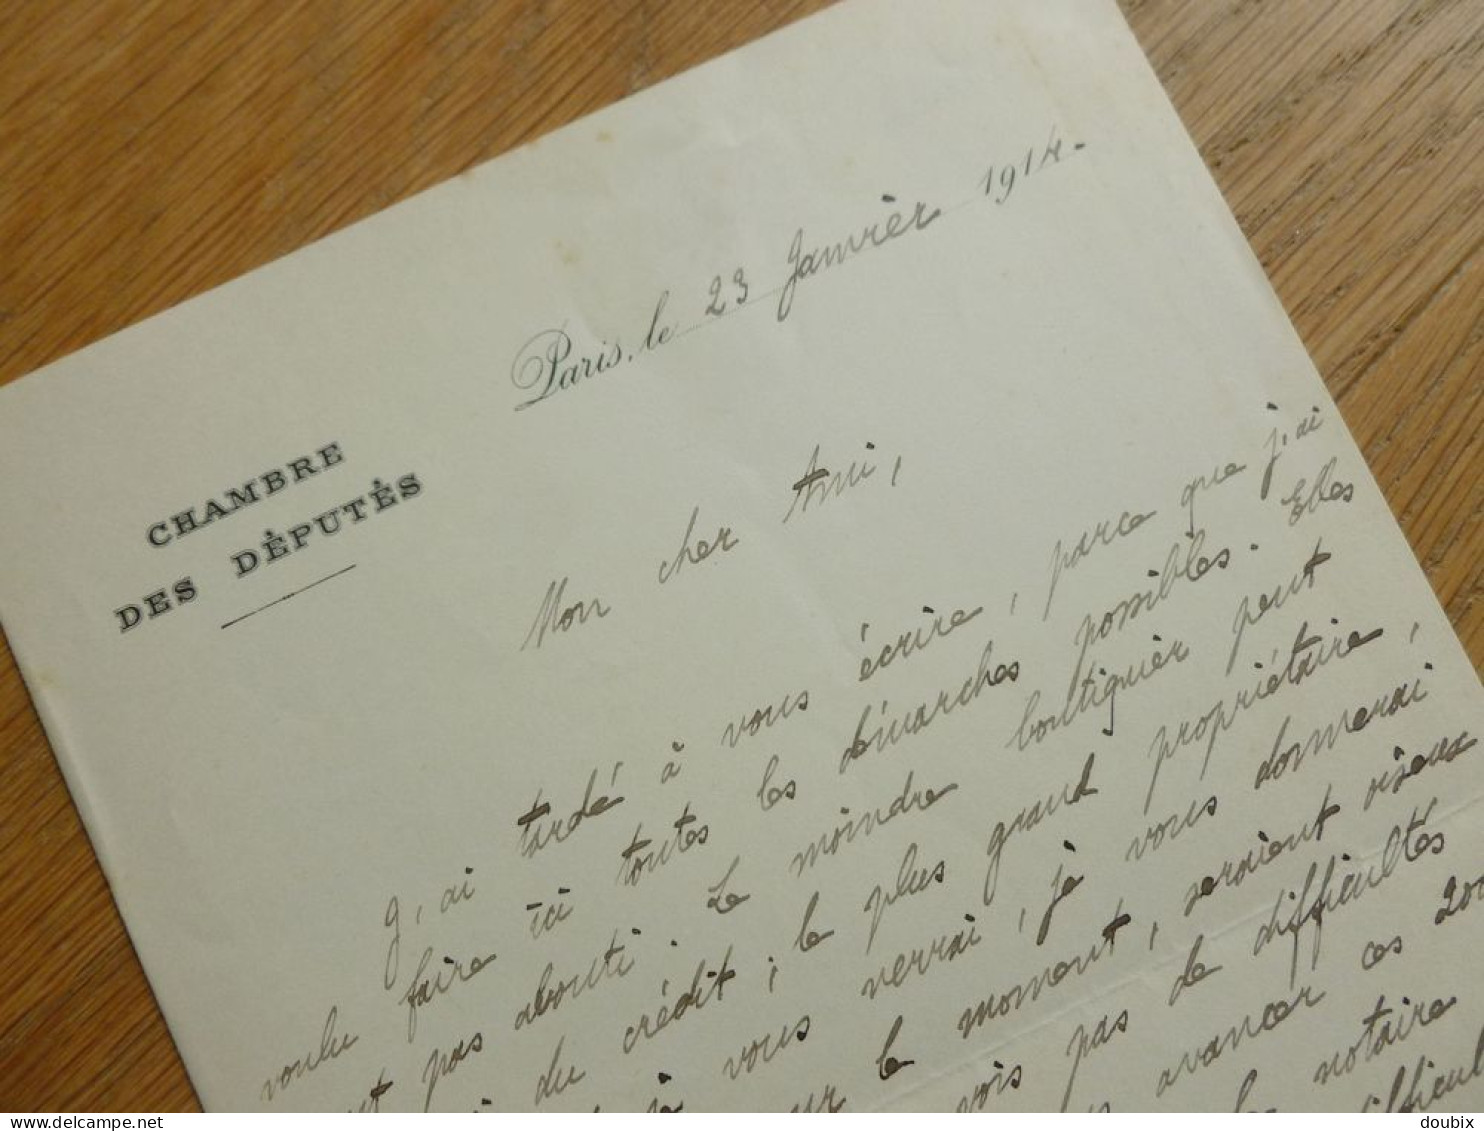 CHAMBRE
DES DÉPUTÉS
Paris, le 23 Janvièr 1914.
Mon cher Ami,
J'ai tardé à vous écrire, parce que j'ai
voulu faire ici toutes les démarches possibles. Elles
pas abouti. Le moindre boutiquièr peut
du crédit; le plus grand propriétaire,
vous verrai, je vous donnerai
le moment, seraient oiseux
vois pas de difficultés
avancer ces 200
notaire
delcampe.net
doubix